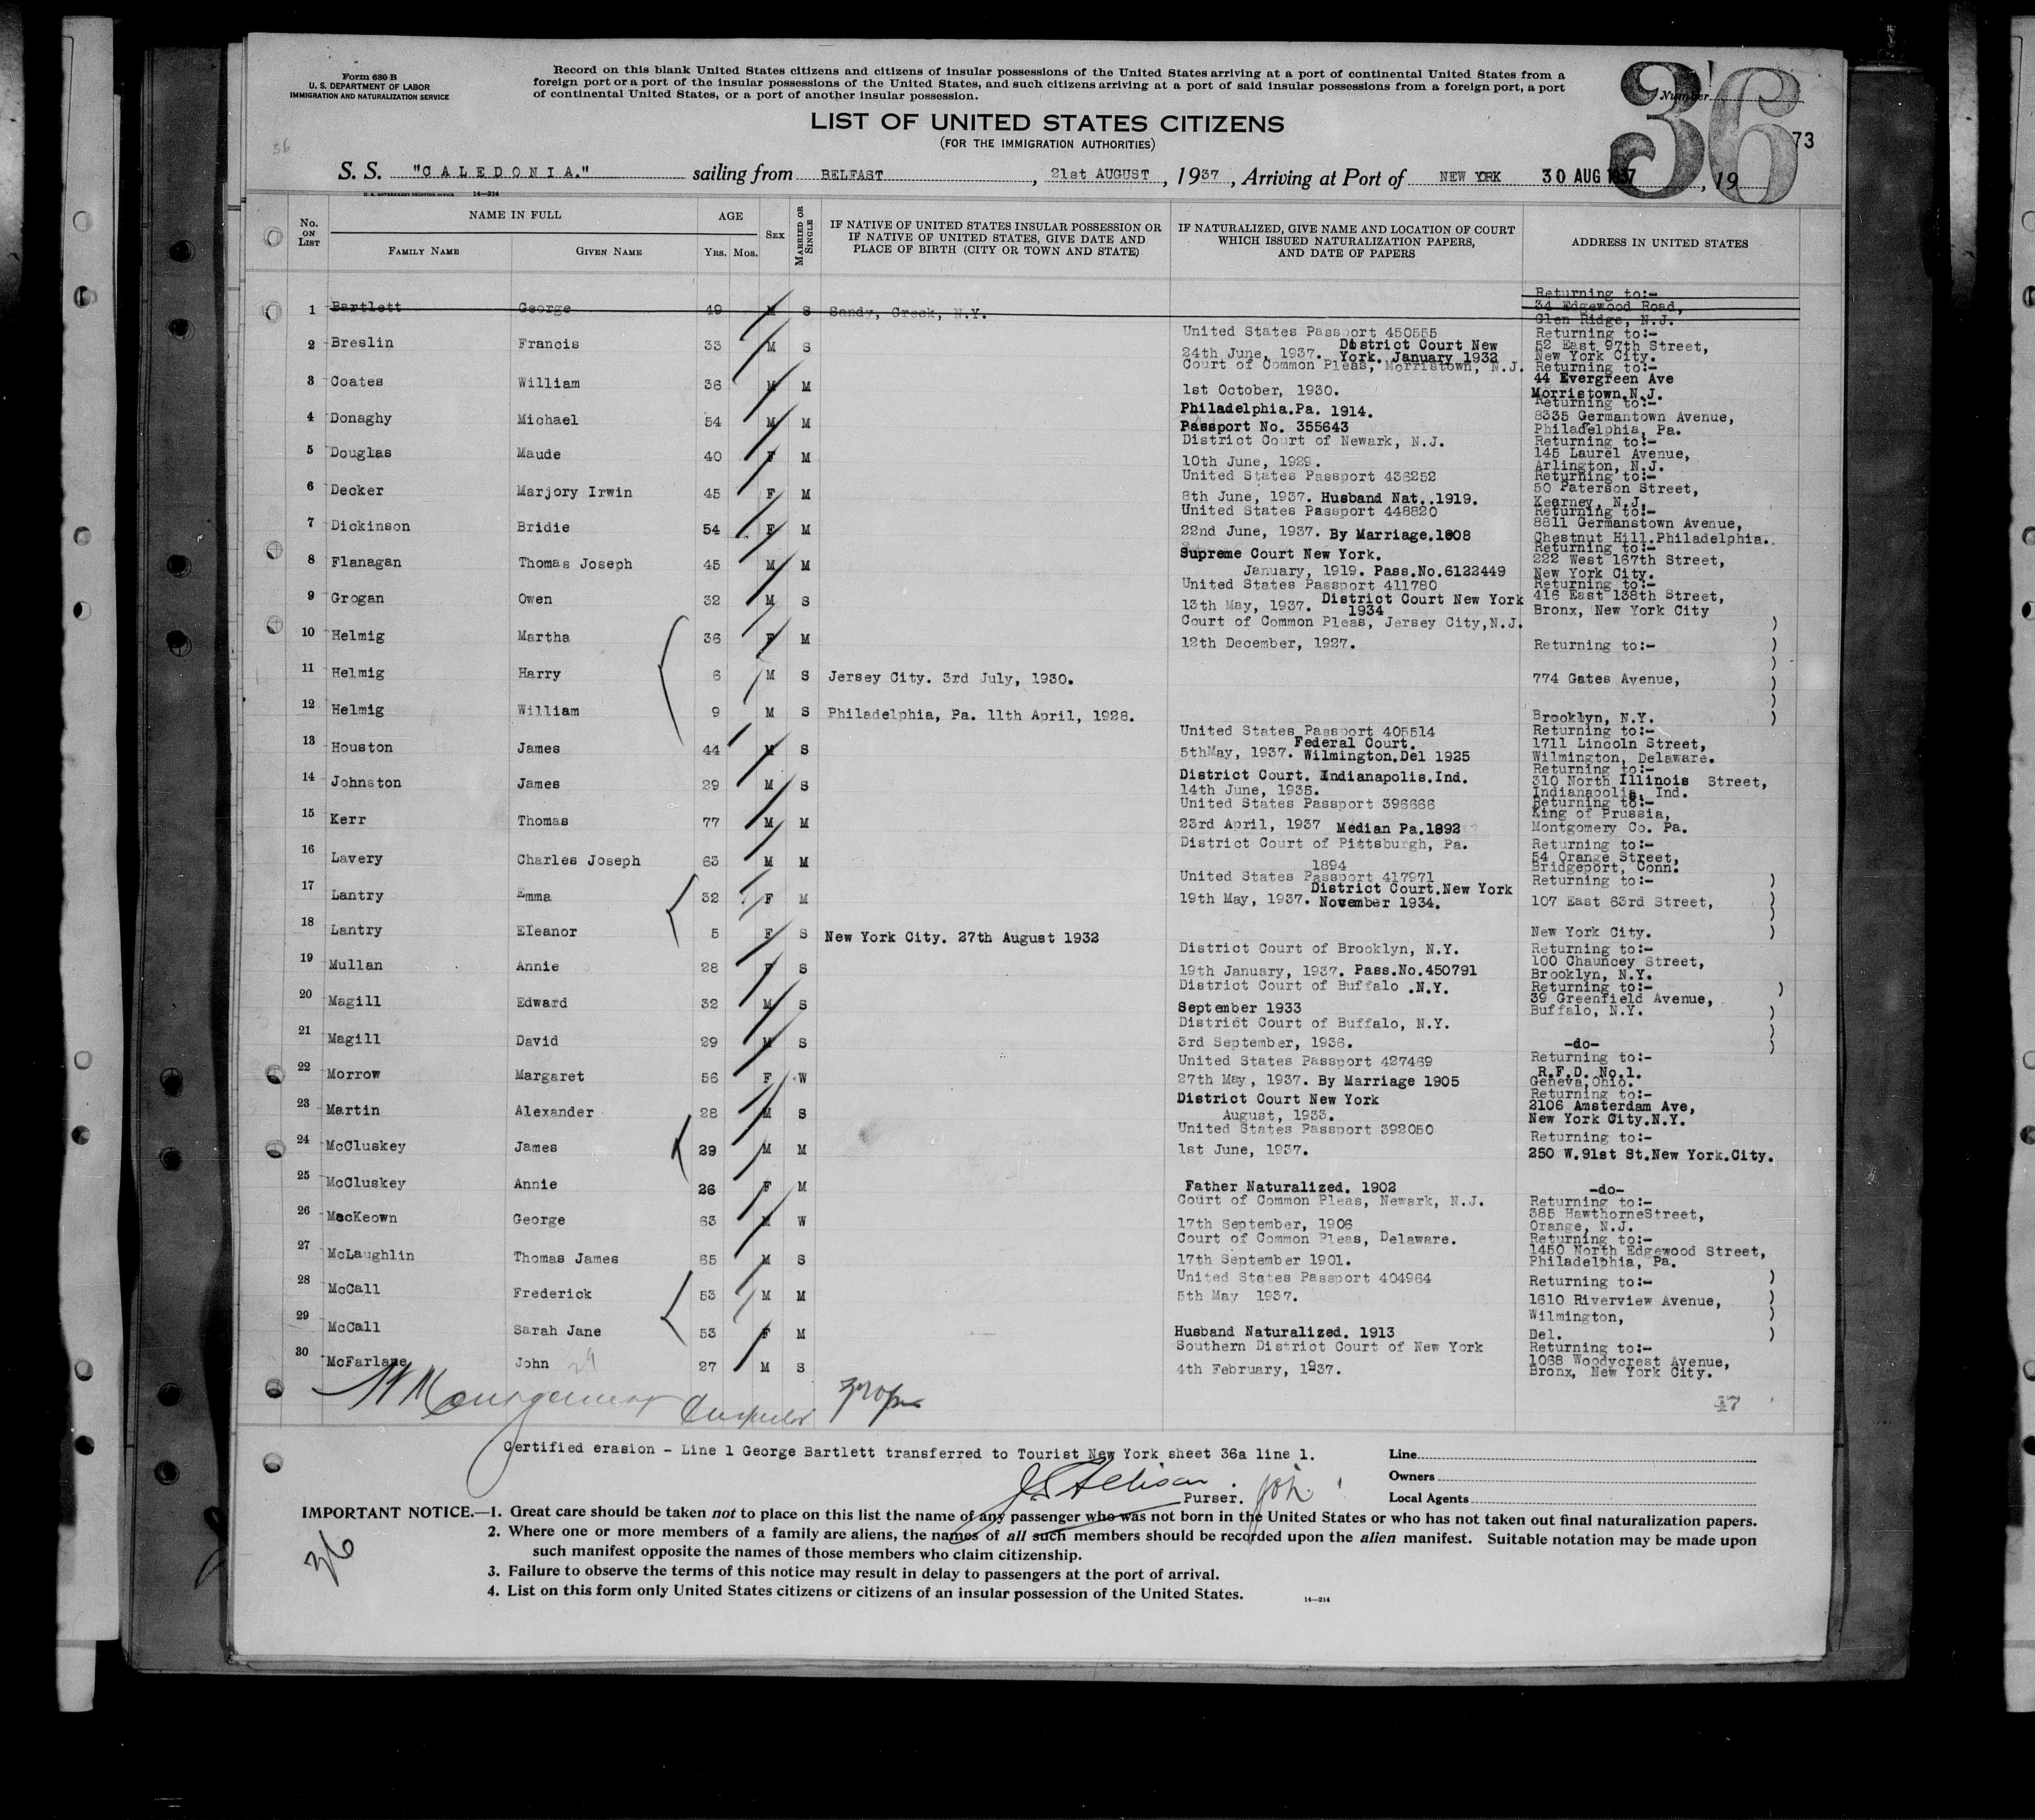 Form 630 B
U. S. DEPARTMENT OF LABOR
IMMIGRATION AND NATURALIZATION SERVICE
Record on this blank United States citizens and citizens of insular possessions of the United States arriving at a port of continental United States from a
foreign port or a port of the insular possessions of the United States, and such citizens arriving at a port of said insular possessions from a foreign port, a port
of continental United States, or a port of another insular possession.
Number
36
73
LIST OF UNITED STATES CITIZENS
(FOR THE IMMIGRATION AUTHORITIES)
36
S. S. "CALEDONIA." sailing from BELFAST, 21st AUGUST, 1937, Arriving at Port of NEW YORK 30 AUG 1937, 19
U. S. GOVERNMENT PRINTING OFFICE 14—214
No. ON LIST NAME IN FULL AGE SEX MARRIED OR SINGLE IF NATIVE OF UNITED STATES INSULAR POSSESSION OR IF NATIVE OF UNITED STATES, GIVE DATE AND PLACE OF BIRTH (CITY OR TOWN AND STATE) IF NATURALIZED, GIVE NAME AND LOCATION OF COURT WHICH ISSUED NATURALIZATION PAPERS, AND DATE OF PAPERS ADDRESS IN UNITED STATES
FAMILY NAME GIVEN NAME YRS. MOS.
1 Bartlett George 49 M S Sandy, Creek, N.Y. Returning to:- 34 Edgewood Road, Glen Ridge, N.J.
2 Breslin Francis 33 M S United States Passport 450555 24th June, 1937. District Court New York. January 1932 Returning to:- 52 East 97th Street, New York City.
3 Coates William 36 M M Court of Common Pleas, Morristown, N.J. 1st October, 1930. Returning to:- 44 Evergreen Ave Morristown.N.J.
4 Donaghy Michael 54 M M Philadelphia.Pa. 1914. Passport No. 355643 Returning to:- 8335 Germantown Avenue, Philadelphia, Pa.
5 Douglas Maude 40 F M District Court of Newark, N.J. 10th June, 1929. Returning to:- 145 Laurel Avenue, Arlington, N.J.
6 Decker Marjory Irwin 45 F M United States Passport 436252 8th June, 1937. Husband Nat. 1919. Returning to:- 50 Paterson Street, Kearney, N.J.
7 Dickinson Bridie 54 F M United States Passport 448820 22nd June, 1937. By Marriage.1908 Returning to:- 8811 Germanstown Avenue, Chestnut Hill.Philadelphia.
8 Flanagan Thomas Joseph 45 M M Supreme Court New York. January, 1919. Pass.No.6122449 Returning to:- 222 West 167th Street, New York City.
9 Grogan Owen 32 M S United States Passport 411780 13th May, 1937. District Court New York 1934 Returning to:- 416 East 138th Street, Bronx, New York City
10 Helmig Martha 36 F M Court of Common Pleas, Jersey City,N.J. 12th December, 1927. Returning to:-
11 Helmig Harry 6 M S Jersey City. 3rd July, 1930. 774 Gates Avenue,
12 Helmig William 9 M S Philadelphia, Pa. 11th April, 1928. Brooklyn, N.Y.
13 Houston James 44 M S United States Passport 405514 5thMay, 1937. Federal Court. Wilmington.Del 1925 Returning to:- 1711 Lincoln Street, Wilmington, Delaware.
14 Johnston James 29 M S District Court. Indianapolis.Ind. 14th June, 1935. Returning to:- 310 North Illinois Street, Indianapolis, Ind.
15 Kerr Thomas 77 M M United States Passport 396666 23rd April, 1937 Median Pa.1892 Returning to:- King of Prussia, Montgomery Co. Pa.
16 Lavery Charles Joseph 63 M M District Court of Pittsburgh, Pa. 1894 Returning to:- 54 Orange Street, Bridgeport, Conn.
17 Lantry Emma 32 F M United States Passport 417971 19th May, 1937. District Court.New York November 1934. Returning to:- 107 East 63rd Street,
18 Lantry Eleanor 5 F S New York City. 27th August 1932 New York City.
19 Mullan Annie 28 F S District Court of Brooklyn, N.Y. 19th January, 1937. Pass.No.450791 Returning to:- 100 Chauncey Street, Brooklyn, N.Y.
20 Magill Edward 32 M S District Court of Buffalo .N.Y. September 1933 Returning to:- 39 Greenfield Avenue, Buffalo, N.Y.
21 Magill David 29 M S District Court of Buffalo, N.Y. 3rd September, 1936. -do-
22 Morrow Margaret 56 F W United States Passport 427469 27th May, 1937. By Marriage 1905 Returning to:- R.F.D. No.1. Geneva,Ohio.
23 Martin Alexander 28 M S District Court New York August, 1933. Returning to:- 2106 Amsterdam Ave, New York City.N.Y.
24 McCluskey James 29 M M United States Passport 392050 1st June, 1937. Returning to:- 250 W.91st St.New York.City.
25 McCluskey Annie 26 F M Father Naturalized. 1902 -do-
26 MacKeown George 63 M W Court of Common Pleas, Newark, N.J. 17th September, 1906 Returning to:- 385 HawthorneStreet, Orange, N.J.
27 McLaughlin Thomas James 65 M S Court of Common Pleas, Delaware. 17th September 1901. Returning to:- 1450 North Edgewood Street, Philadelphia, Pa.
28 McCall Frederick 53 M M United States Passport 404964 5th May 1937. Returning to:- 1610 Riverview Avenue,
29 McCall Sarah Jane 53 F M Husband Naturalized. 1913 Wilmington, Del.
30 McFarlane John 29 27 M S Southern District Court of New York 4th February, 1937. Returning to:- 1068 Woodycrest Avenue, Bronx, New York City.
Montgomery Inspector
47
Certified erasion - Line 1 George Bartlett transferred to Tourist New York sheet 36a line 1.
Purser.
Line
Owners
Local Agents
IMPORTANT NOTICE.—1. Great care should be taken not to place on this list the name of any passenger who was not born in the United States or who has not taken out final naturalization papers.
2. Where one or more members of a family are aliens, the names of all such members should be recorded upon the alien manifest. Suitable notation may be made upon
such manifest opposite the names of those members who claim citizenship.
3. Failure to observe the terms of this notice may result in delay to passengers at the port of arrival.
4. List on this form only United States citizens or citizens of an insular possession of the United States.
14—214
36